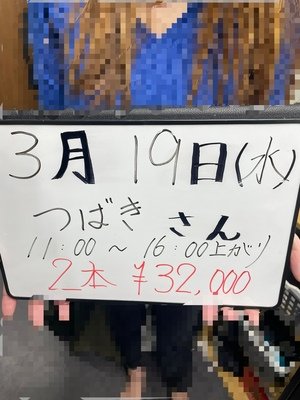 3月19日(水)
つばき さん
11:00～16:00上がり
2本 ¥32,000